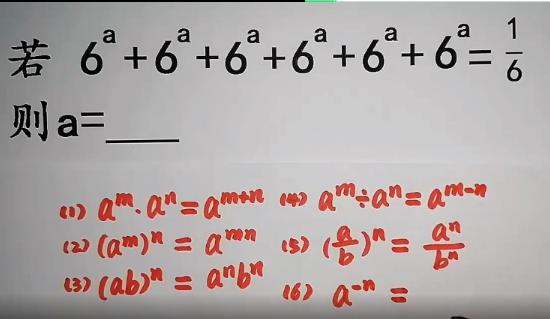 若 6^a+6^a+6^a+6^a+6^a+6^a=1/6
则a=____
(1) a^m·a^n=a^{m+n} (4) a^m÷a^n=a^{m-n}
(2) (a^m)^n=a^{mn} (5) (a/b)^n=a^n/b^n
(3) (ab)^n=a^nb^n (6) a^{-n}=